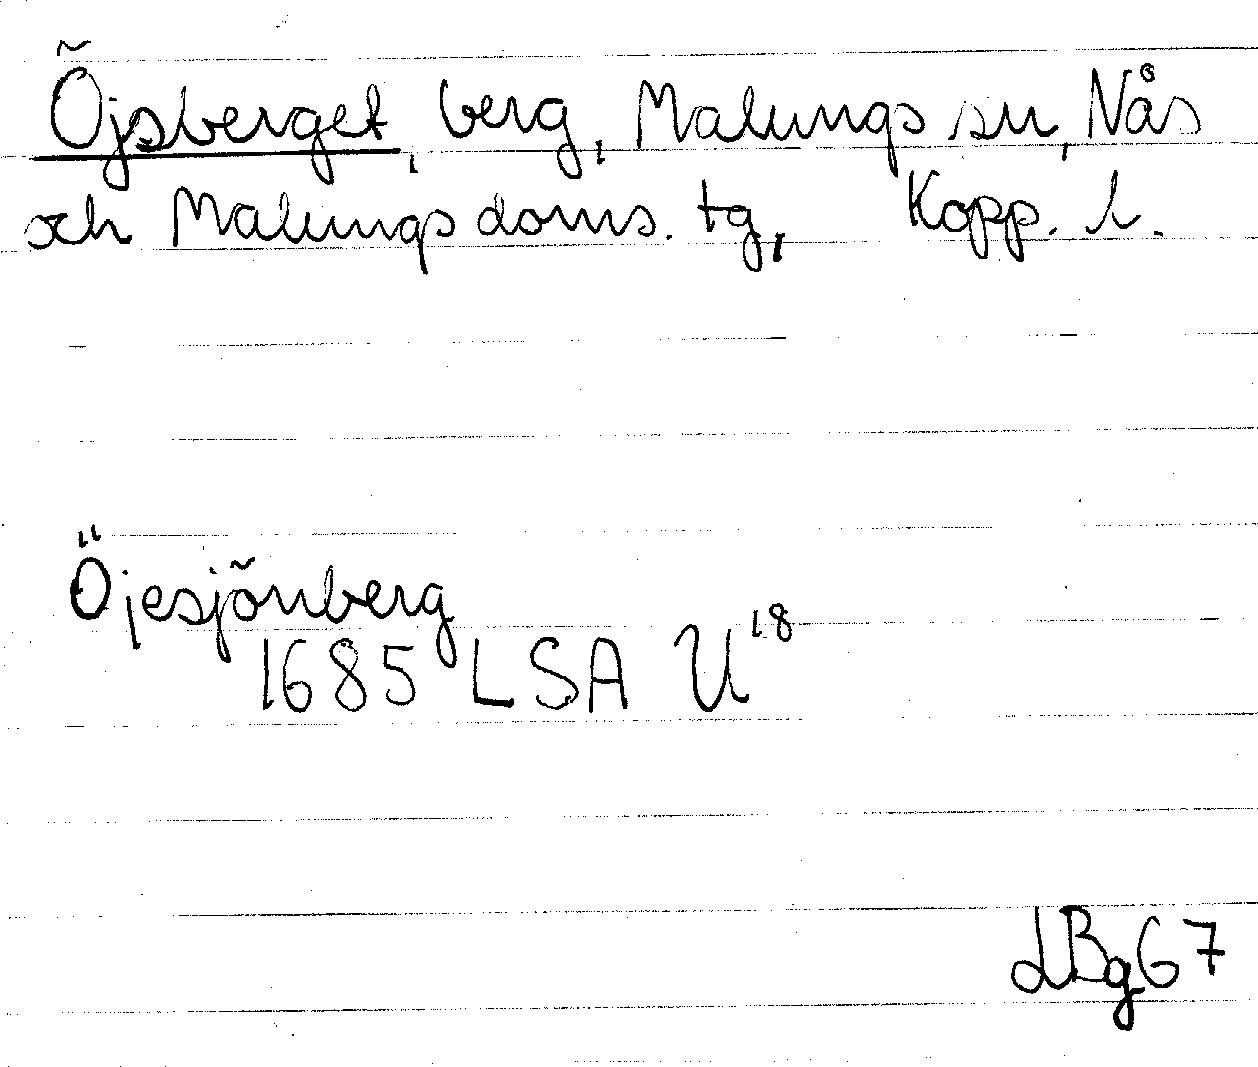 Öjsberget, berg, Malungs sn, Nås
och Malungs doms. tg, Kopp. l.
Öjesjönberg
1685 LSA U¹⁸
LBg67